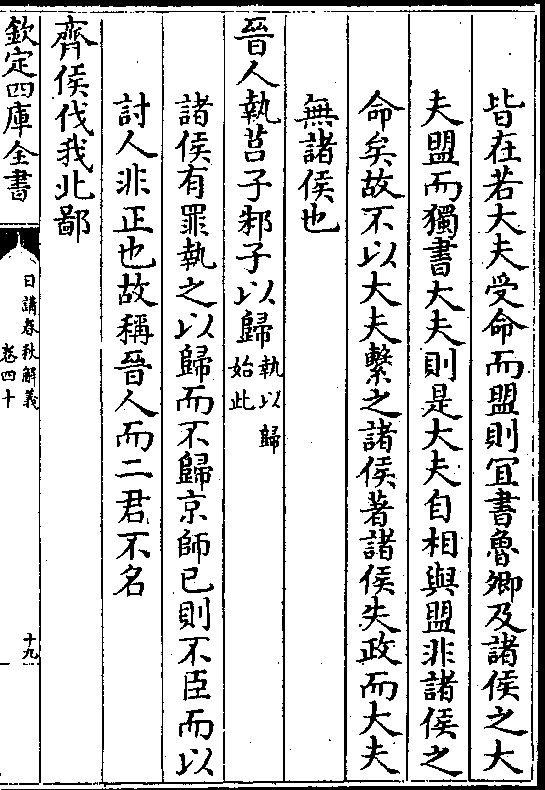 皆在若大夫受命而盟則宜書魯卿及諸侯之大
夫盟而獨書大夫則是大夫自相與盟非諸侯之
命矣故不以大夫繫之諸侯著諸侯失政而大夫
無諸侯也
晉人執莒子邾子以歸執以歸
始此
諸侯有罪執之以歸而不歸京師已則不臣而以
討人非正也故稱晉人而二君不名
齊侯伐我北鄙
欽定四庫全書
日講春秋解義
卷四十
十九